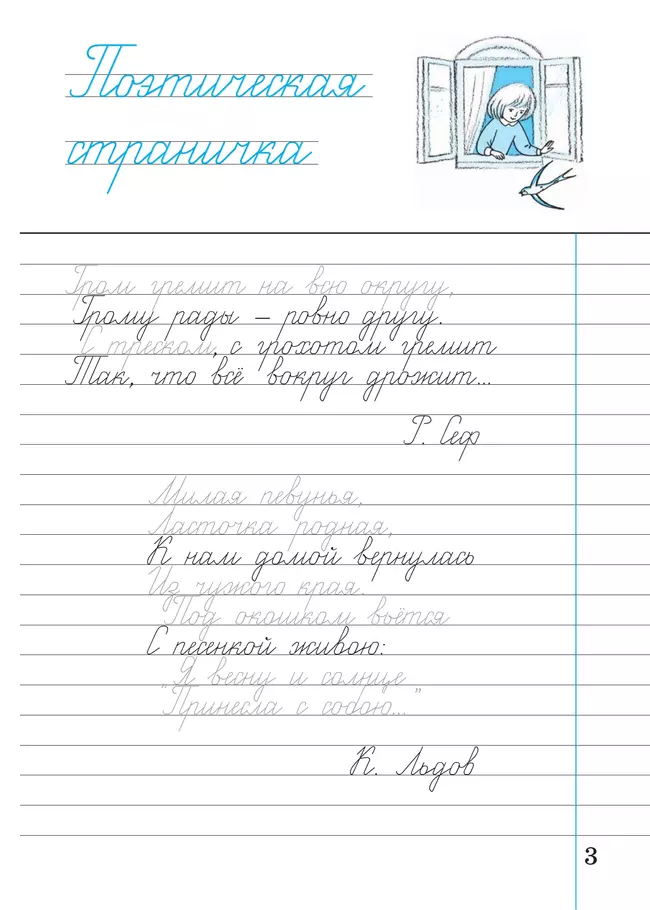 Поэтическая
страничка
Гром гремит на всю округу,
Грому рады – ровно другу.
С треском, с грохотом гремит
Так, что всё вокруг дрожит...
Р. Сеф
Милая певунья,
Ласточка родная,
К нам домой вернулась
Из чужого края.
Под окошком вьётся
С песенкой живою:
"Я весну и солнце
Принесла с собою..."
К. Льдов
3